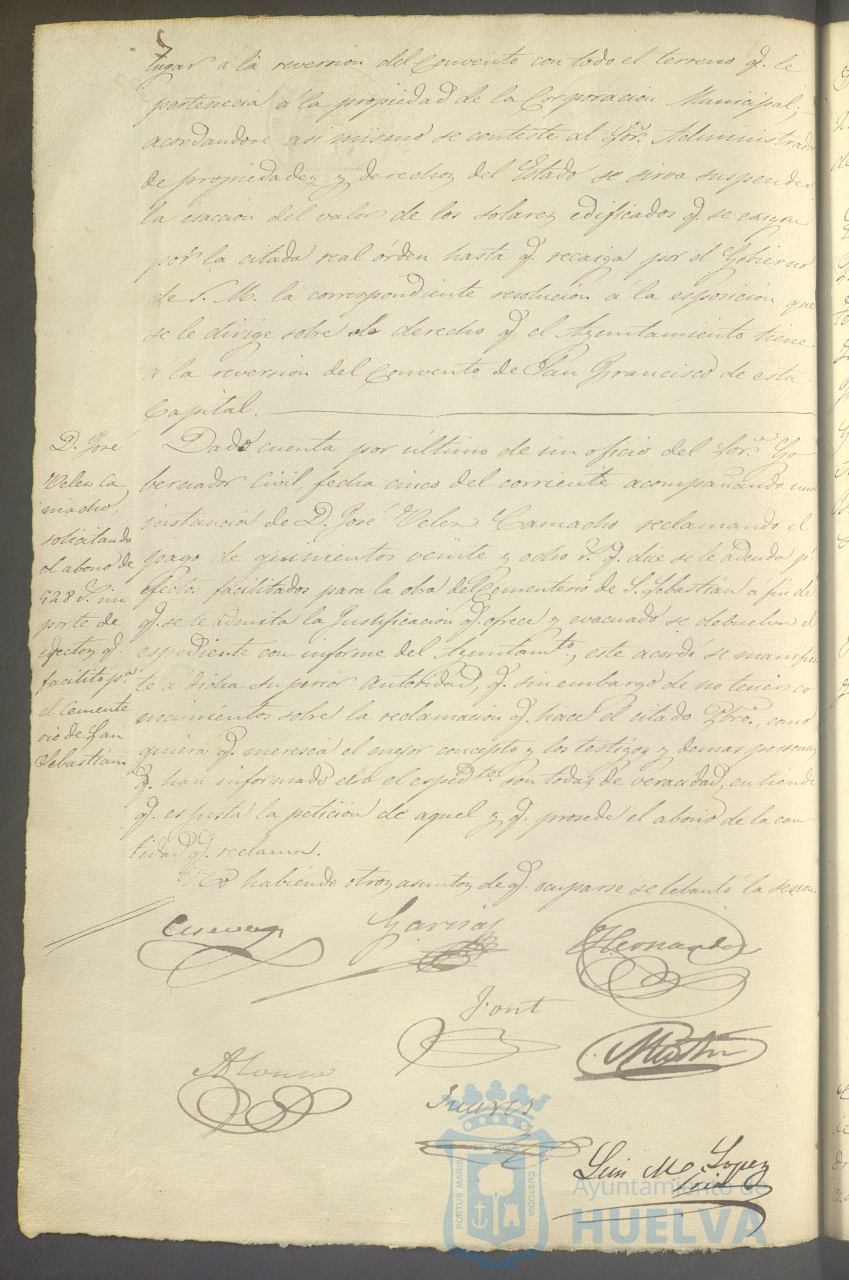 lugar á la reversion del Convento con todo el terreno q. le
pertenecia á la propiedad de la Corporacion Municipal;
acordandose asi mismo se conteste al Sor. Administrador
de propiedades y derechos del Estado se sirva suspender
la esaccion del valor de los solares edificados q. se exigen
por la citada real órden hasta q. recaiga por el Gobierno
de S. M. la correspondiente resolucion á la esposicion que
se le dirige sobre el derecho q. el Ayuntamiento tiene
á la reversion del Convento de San Francisco de esta
Capital.
D. José
Velez Ca
macho,
solicitando
el abono de
528 r. im
porte de
efectos q.
facilitó pa
el Cemente
rio de San
Sebastián
Dado cuenta por último de un oficio del Sor. Go-
bernador Civil, fecha cinco del corriente acompañando una
instancia de D. José Velez Camacho reclamando el
pago de quinientos veinte y ocho r. q. dice se le adeuda pr
efectos facilitados para la obra del Cementerio de S. Sebastián á fin de
q. se le admita la Justificacion q. ofrece y evacuado se debuelva el
espediente con informe del Ayuntamto., este acordo se manifies
te a dicha superior autoridad, q. sin embargo de no tener co
nocimientos sobre la reclamacion q. hace el citado, como
quiera q. meresca el mejor concepto y los testigos y demas personas
q. han informado en el espedte. son todas de veracidad, entiende
q. es justa la peticion de aquel y q. procede el abono de la can
tidad q. reclama.
No habiendo otros asuntos de q. ocuparse se lebantó la sesion
Cuevas
Garcia
Hernandez
Font
Martin
Alonso
Suares
Luis M. Lopez
Ayuntamiento de
HUELVA
PORTUS MARIS
CUSTODIA